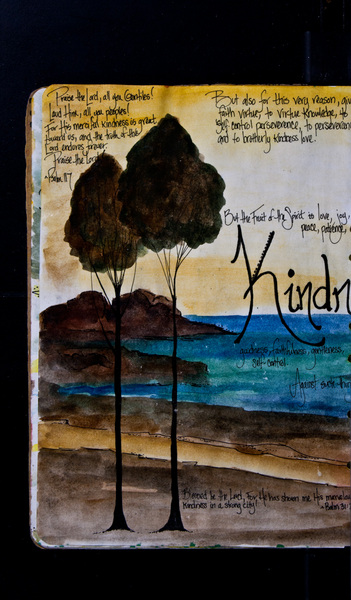 Praise the Lord, all you Gentiles!
Laud Him, all you peoples!
For His merciful kindness is great
toward us, and the truth of the
Lord endures forever.
Praise the Lord
~Psalm 117
But also for this very reason, giv
faith virtue, to virtue knowledge, to
self control perseverance, to perseveran
and to brotherly kindness love.
But the Fruit of the Spirit is love, joy,
peace, patience,
Kindn
goodness, faithfulness, gentleness,
self-control.
Against such
Blessed be the Lord, For He has shown me His marvelou
kindness in a strong city!
~Psalm 31:2